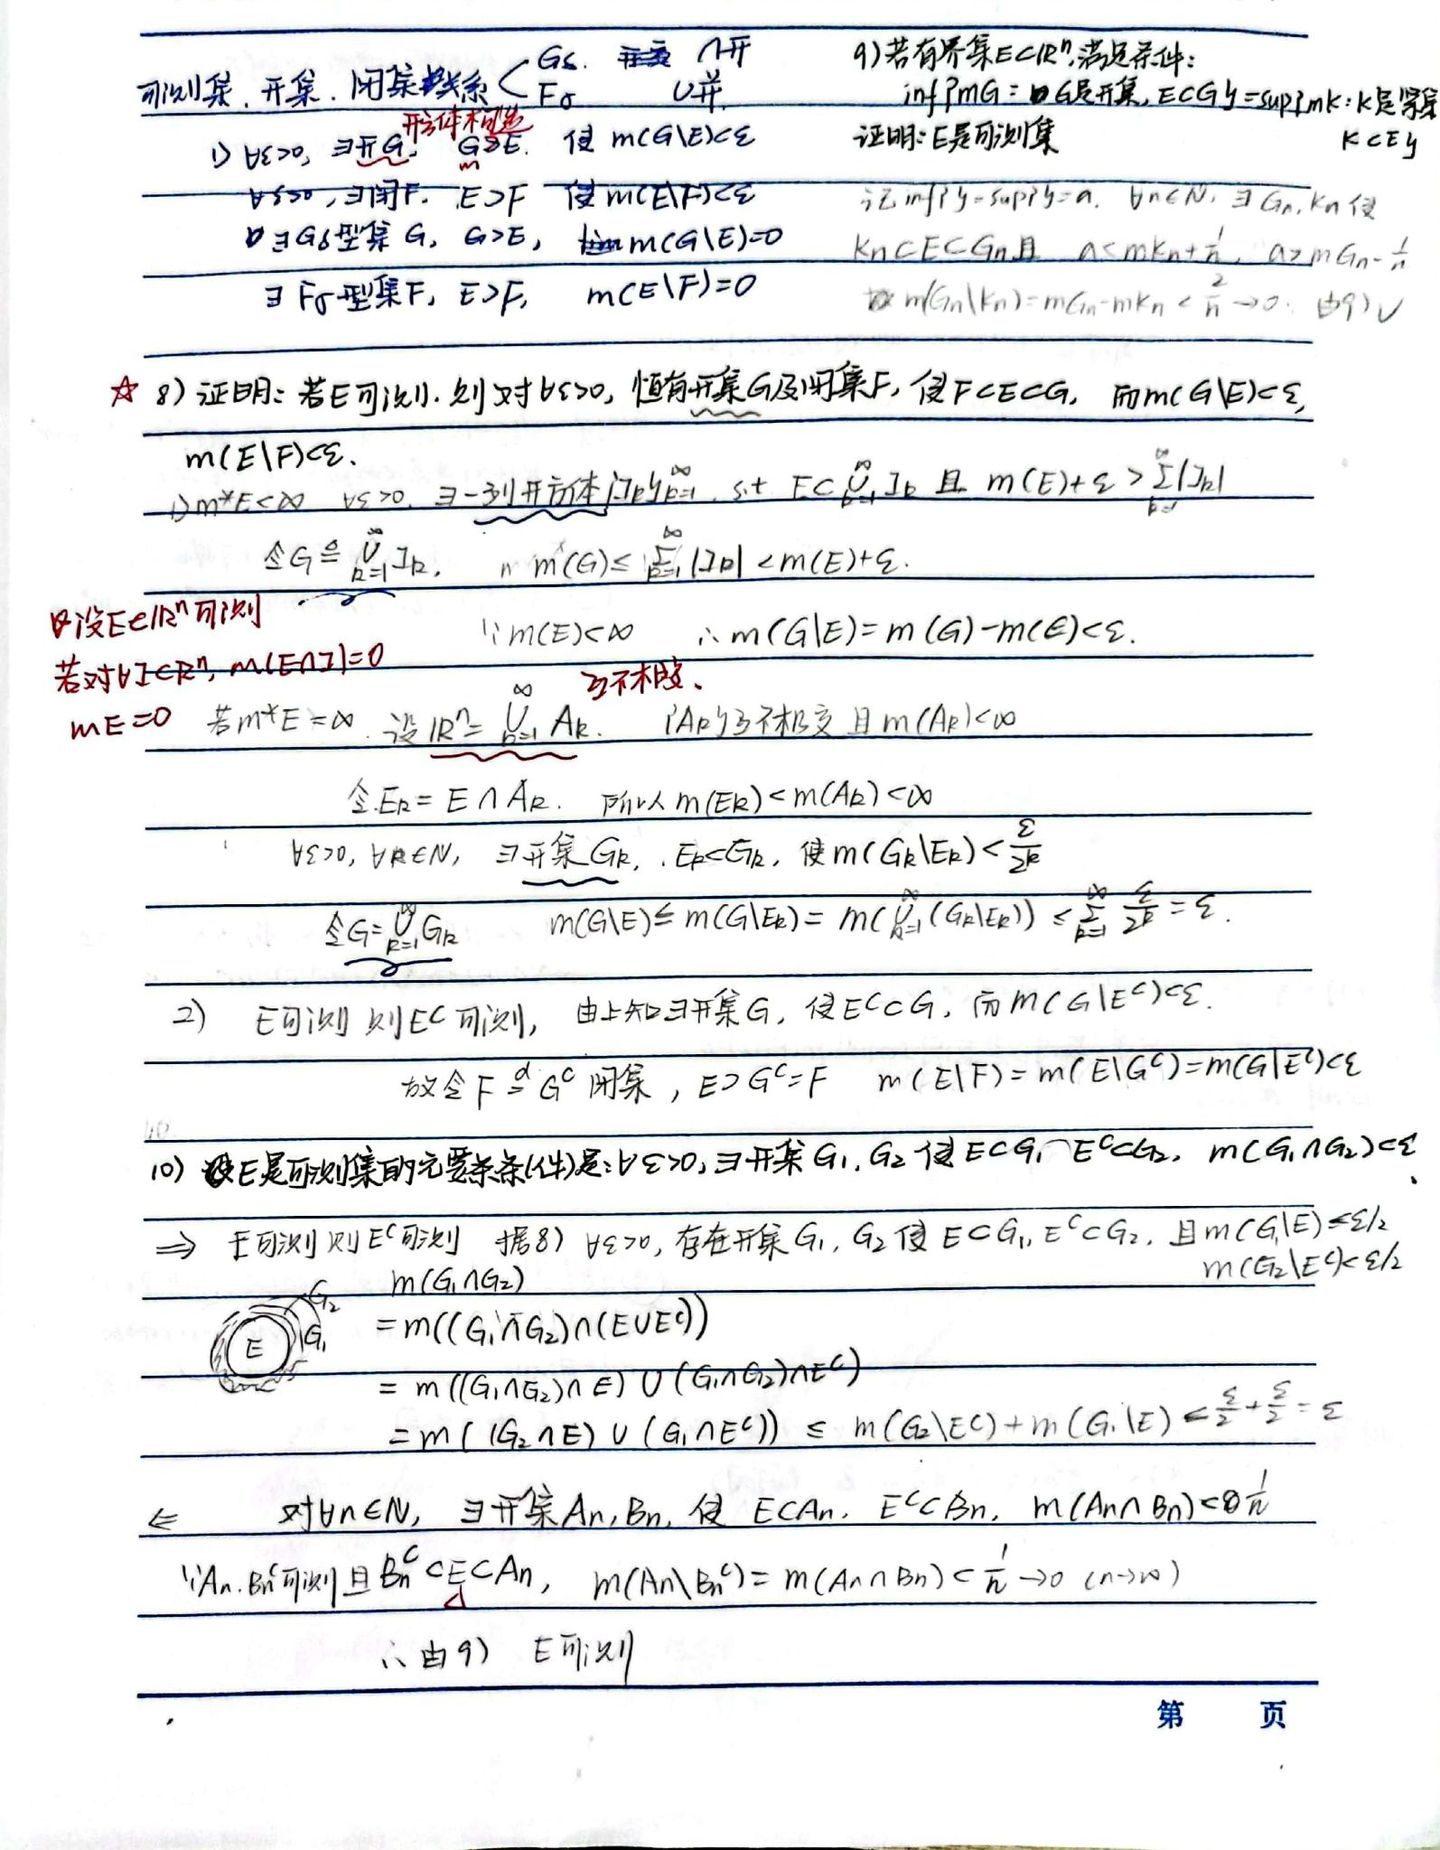 可测集、开集、闭集关系 < Gδ. ∩开
Fσ ∪闭
开方体构造
1) ∀ε>0, ∃开G, G⊃E. 使 m(G\E)<ε
∀ε>0, ∃闭F. E⊃F 使 m(E\F)<ε
∃Gδ型集G, G⊃E, m(G\E)=0
∃Fσ型集F, E⊃F, m(E\F)=0
9) 若有界集E⊂ℝⁿ, 满足条件:
inf{mG: G是开集, E⊂G}=sup{mK: K是紧集
K⊂E}
证明: E是可测集
记 inf{}=sup{}=a. ∀n∈N, ∃Gn, Kn 使
Kn⊂E⊂Gn且 a<mKn+1/n, a>mGn-1/n
故 m(Gn\Kn)=mGn-mKn<2/n→0. 由9)√
☆ 8) 证明: 若E可测. 则对∀ε>0, 恒有开集G及闭集F, 使F⊂E⊂G, 而m(G\E)<ε,
m(E\F)<ε.
1) m*E<∞ ∀ε>0. ∃一列开方体{Ik}∞k=1. s.t E⊂∞∪k=1 Ik 且 m(E)+ε>∞Σk=1|Ik|
令G≜∞∪k=1 Ik, m*(G)≤∞Σk=1|Ik|<m(E)+ε.
设E∈ℝⁿ可测
∵m(E)<∞ ∴m(G\E)=m(G)-m(E)<ε.
若对∀I⊂ℝⁿ, m(E∩I)=0
mE=0
互不相交.
若m*E=∞. 设ℝⁿ=∞∪k=1 Ak. {Ak}互不相交 且 m(Ak)<∞
令Ek=E∩Ak. 所以m(Ek)<m(Ak)<∞
∀ε>0, ∀k∈N, ∃开集Gk, Ek⊂Gk, 使m(Gk\Ek)<ε/2ᵏ
令G=∞∪k=1 Gk m(G\E)≤m(G\Ek)=m(∞∪k=1(Gk\Ek))≤∞Σk=1 ε/2ᵏ=ε.
2) E可测 则Eᶜ可测, 由上知∃开集G, 使Eᶜ⊂G, 而m(G\Eᶜ)<ε.
故令F≜Gᶜ闭集, E⊃Gᶜ=F m(E\F)=m(E\Gᶜ)=m(G\Eᶜ)<ε
10) E是可测集的充要条件是: ∀ε>0, ∃开集G1, G2 使E⊂G1 Eᶜ⊂G2, m(G1∩G2)<ε
⇒ E可测则Eᶜ可测 据8) ∀ε>0, 存在开集G1, G2使E⊂G1, Eᶜ⊂G2, 且m(G1\E)≤ε/2
m(G2\Eᶜ)<ε/2
m(G1∩G2)
G2
G1
E
=m((G1∩G2)∩(E∪Eᶜ))
=m((G1∩G2)∩E)∪(G1∩G2)∩Eᶜ)
=m((G2∩E)∪(G1∩Eᶜ))≤m(G2\Eᶜ)+m(G1\E)≤ε/2+ε/2=ε
⇐ 对∀n∈N, ∃开集An, Bn, 使 E⊂An, Eᶜ⊂Bn, m(An∩Bn)<1/n
∵An, Bnᶜ可测且Bnᶜ⊂E⊂An, m(An\Bnᶜ)=m(An∩Bn)<1/n→0 (n→∞)
∴由9) E可测
第 页